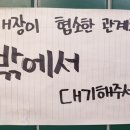 매장이 협소한 관계
밖에서
대기해주서